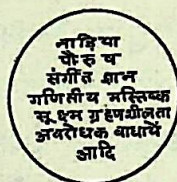 नाड़िया
पौरुष
संगीत ज्ञान
गणितीय मस्तिष्क
सूक्ष्म ग्रहणशीलता
अवरोधक बाधायें
आदि